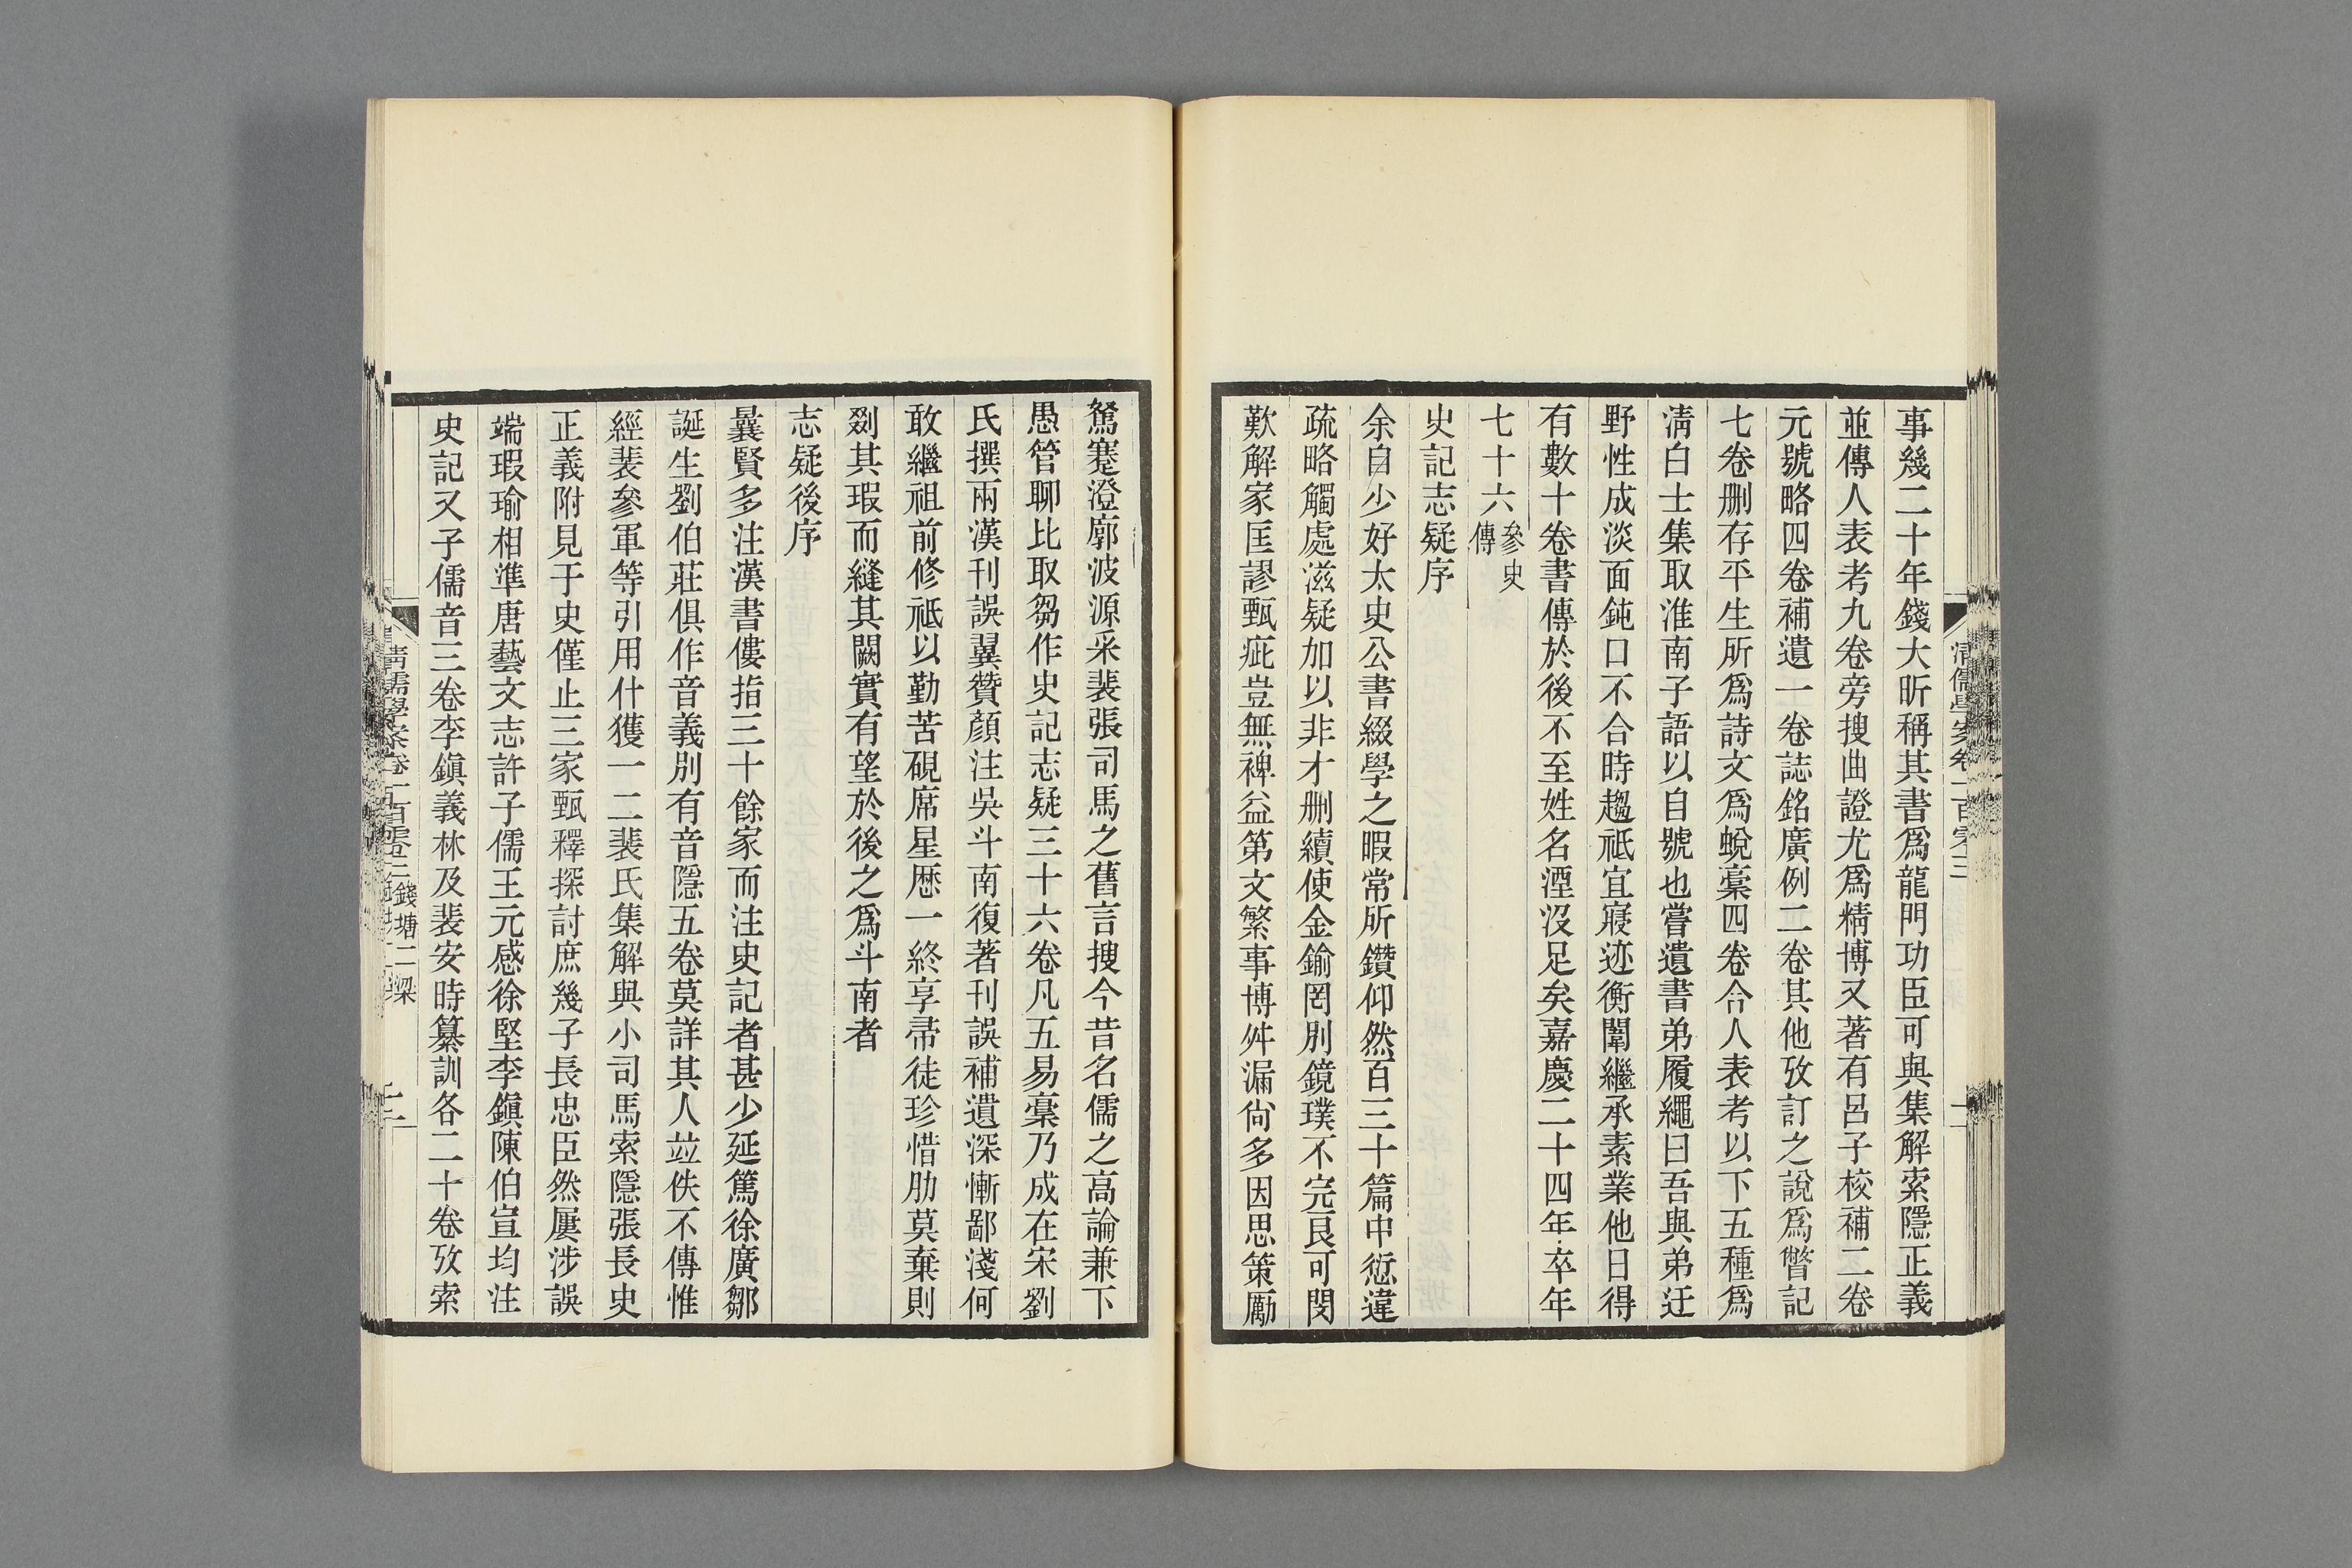 事幾二十年錢大昕稱其書爲龍門功臣可與集解索隱正義
並傳人表考九卷旁搜曲證尤爲精博又著有呂子校補二卷
元號略四卷補遺一卷誌銘廣例二卷其他攷訂之說爲瞥記
七卷删存平生所爲詩文爲蛻稾四卷合人表考以下五種爲
淸白士集取淮南子語以自號也嘗遺書弟履繩曰吾與弟迂
野性成淡面鈍口不合時趨祗宜寢迹衡闈繼承素業他日得
有數十卷書傳於後不至姓名湮沒足矣嘉慶二十四年卒年
七十六參史傳
史記志疑序
余自少好太史公書綴學之暇常所鑽仰然百三十篇中愆違
疏略觸處滋疑加以非才删續使金鍮罔別鏡璞不完良可閔
歎解家匡謬甄疵豈無裨益第文繁事博舛漏尙多因思策勵
駑蹇澄廓波源采裴張司馬之舊言搜今昔名儒之高論兼下
愚管聊比取芻作史記志疑三十六卷凡五易稾乃成在宋劉
氏撰兩漢刊誤翼贊顏注吳斗南復著刊誤補遺深慚鄙淺何
敢繼祖前修祗以勤苦硯席星歷一終享帚徒珍惜肋莫棄則
剟其瑕而縫其闕實有望於後之爲斗南者
志疑後序
曩賢多注漢書僂指三十餘家而注史記者甚少延篤徐廣鄒
誕生劉伯莊俱作音義別有音隱五卷莫詳其人竝佚不傳惟
經裴參軍等引用什獲一二裴氏集解與小司馬索隱張長史
正義附見于史僅止三家甄釋探討庶幾子長忠臣然屢涉誤
端瑕瑜相準唐藝文志許子儒王元感徐堅李鎭陳伯宣均注
史記又子儒音三卷李鎭義林及裴安時纂訓各二十卷攷索
淸儒學案卷一百零三
錢塘二梁
二